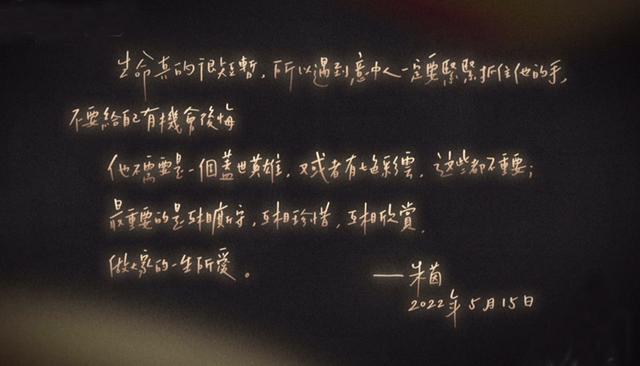 生命真的很短暫，所以遇到意中人一定要緊緊抓住他的手，
不要給自己有機會後悔
他不需要是一個蓋世英雄，又或者有七色彩雲，這些都不重要；
最重要的是互相廝守，互相珍惜，互相欣賞，
做大家的一生所愛。
——朱茵
2022年5月15日